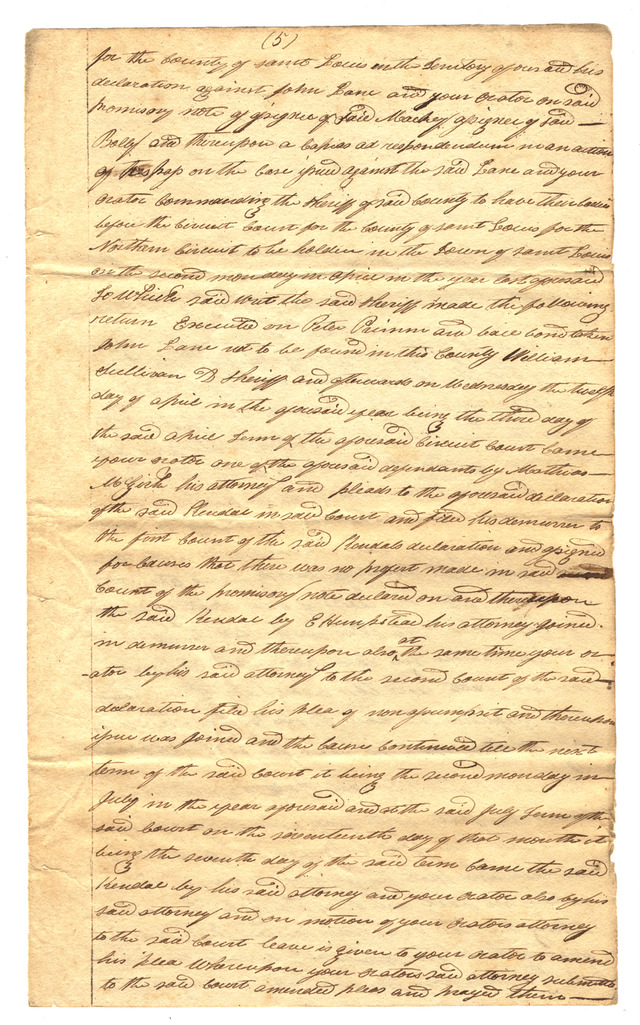 (5)
for the County of saint Louis in the Territory aforesaid his
declaration against John Lane and your orator on said
promisory note of assignee of said Mackey assignee of said
and thereupon a Capias ad respondendum in an action
of trespass on the case issued against the said Lane and your
orator commanding the sheriff of said County to have their bodies
before the Circuit Court for the County of saint Louis for the
Northern Circuit to be holden in the Town of saint Louis
on the second monday in april in the year last aforesaid
To which said writ the said sheriff made the following
return Executed on Peter Primm and bond taken
John Lane not to be found in this County William
Sullivan D sheriff and afterwards on Wednesday the
day of april in the aforesaid year being the third day of
the said april Term of the aforesaid Circuit Court came
your orator one of the aforesaid defendants by Mathias
McGirk his attorney and pleads to the aforesaid declaration
of the said Kendal in said Court and filed his demurrer to
the first Count of the said Kendals declaration and assigned
for causes that there was no profert made in said
Count of the promisory note declared on and thereupon
the said Kendal by E Hempstead his attorney joined
in demurrer and thereupon also at the same time your or
-ator by his said attorney to the second Count of the said
declaration filed his plea of non assumpsit and thereupon
issue was joined and the cause continued till the next
term of the said Court it being the second monday in
July in the year aforesaid and at the said July Term of the
said Court on the seventeenth day of that month it
being the seventh day of the said term came the said
Kendal by his said attorney and your orator also by his
said attorney and on motion of your orators attorney
to the said Court leave is given to your orator to amend
his plea Whereupon your orators said attorney submitts
to the said Court amended pleas and prayed them